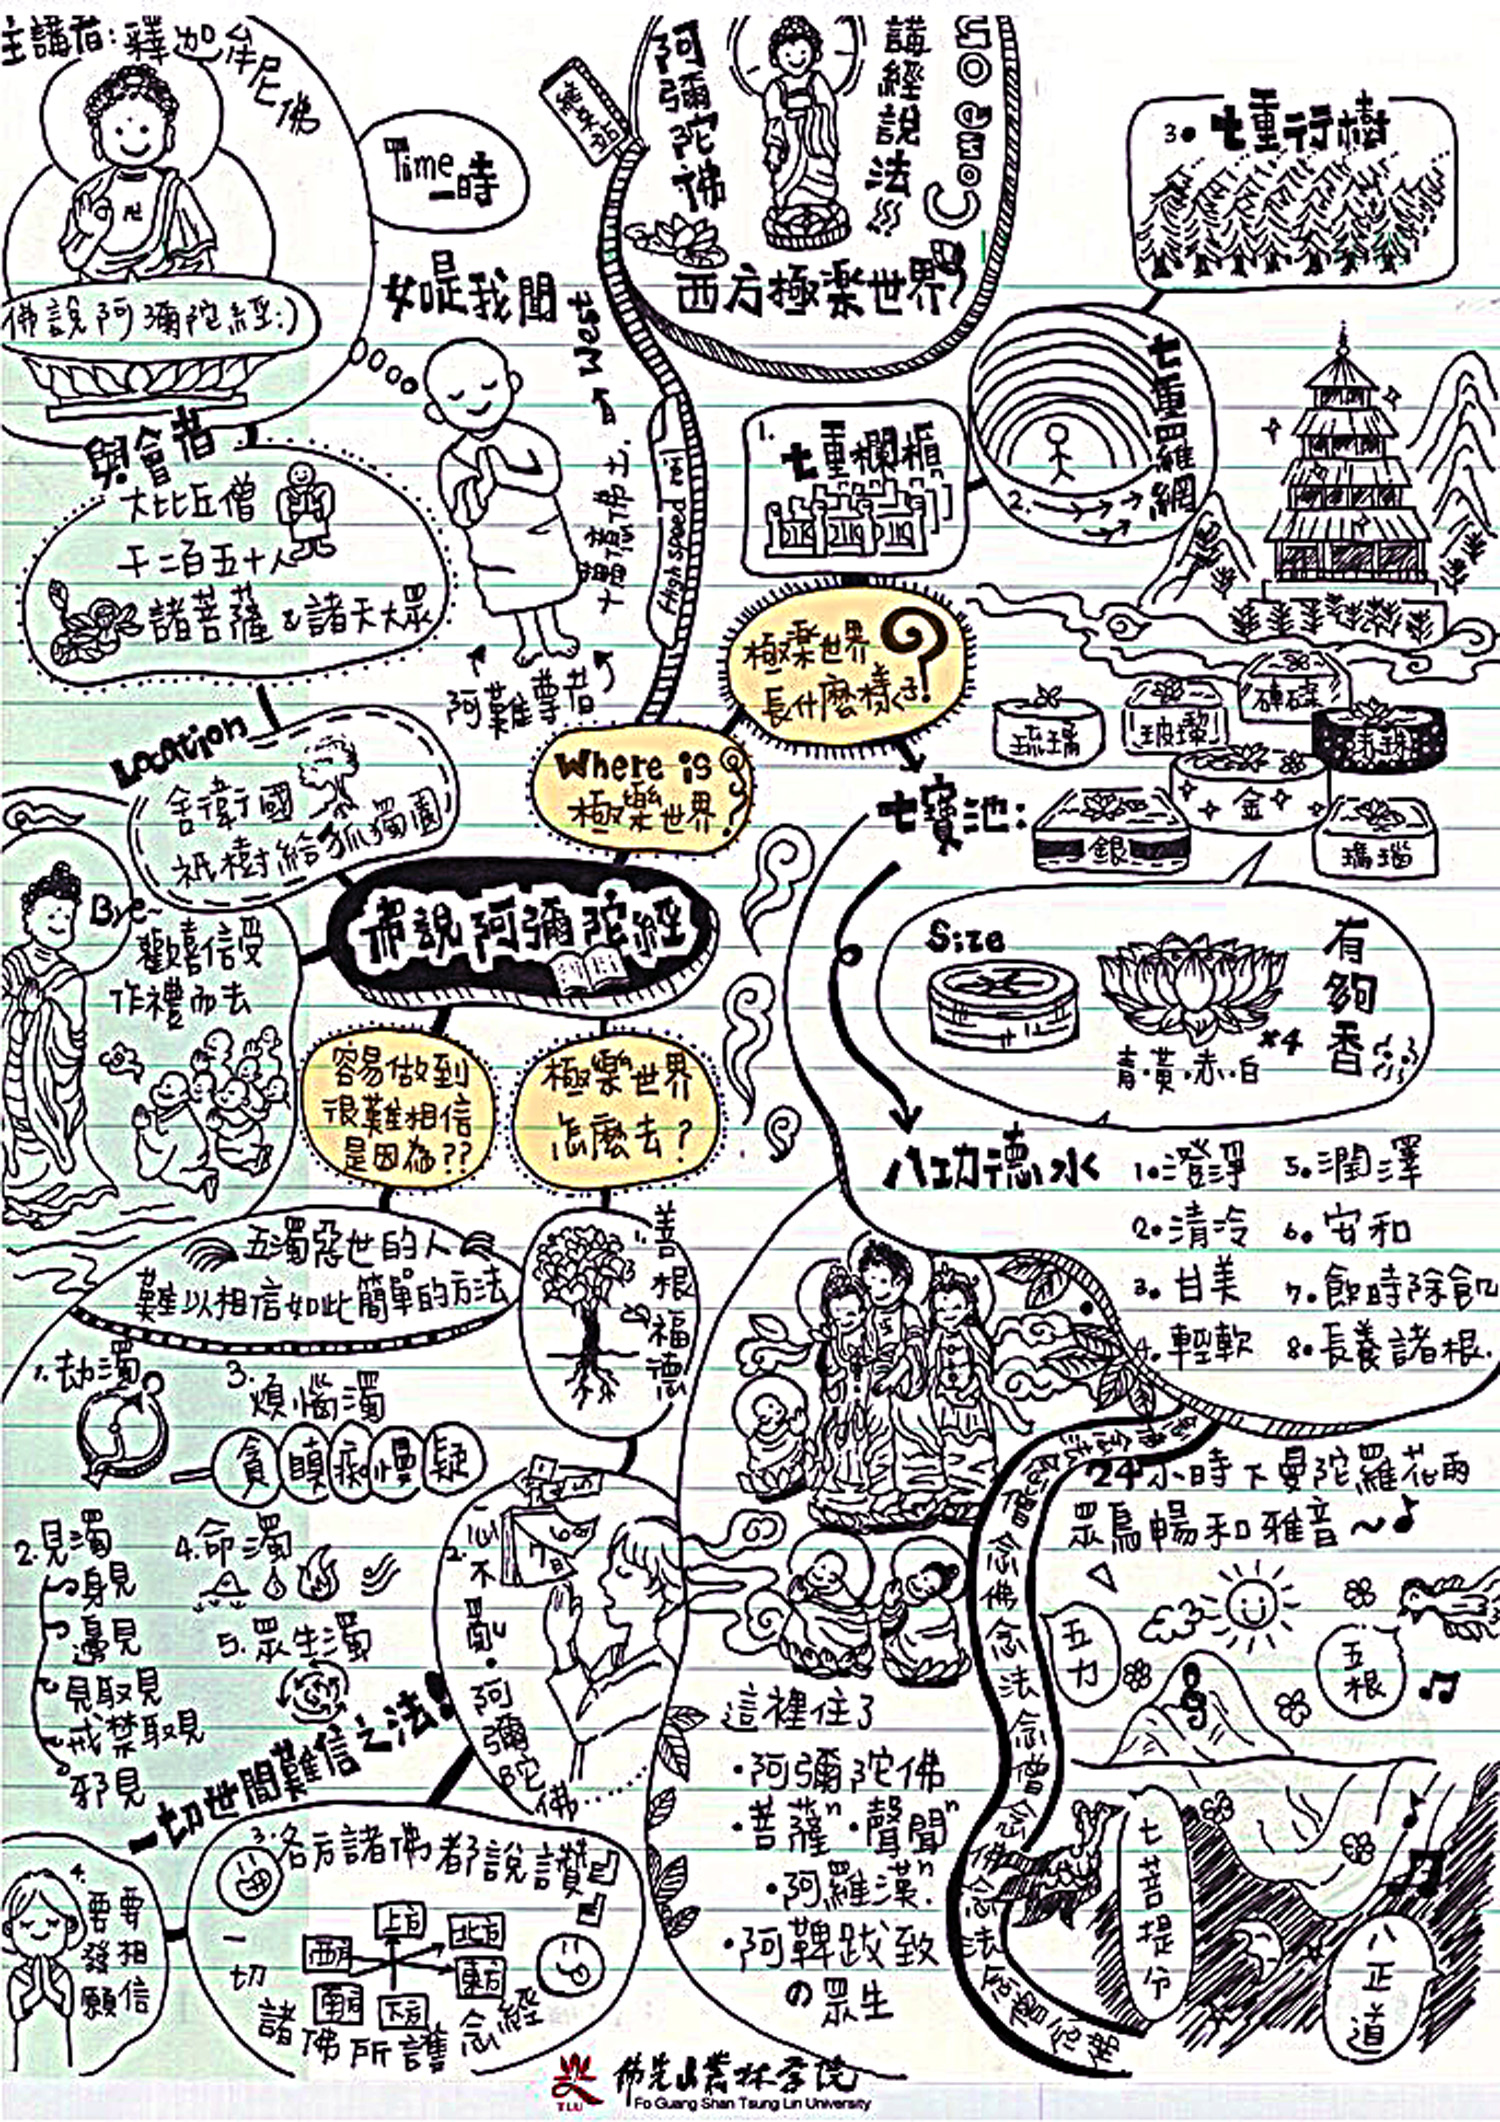 主講者：釋迦牟尼佛
佛說阿彌陀經:)
Time
一時
如是我聞
與會者
大比丘僧
千二百五十人
諸菩薩&諸天大眾
阿難尊者
West
十萬億佛土
High speed
阿彌陀佛
講經說法
Coming soon
西方極楽世界
3. 七重行樹
2. 七重羅網
1. 七重欄楯
極楽世界
長什麼樣ㄍㄜ?!
Where is
極樂世界?
Location
舍衛國
祇樹給孤獨園
佛說阿彌陀經
Bye~
歡喜信受
作禮而去
七寶池：
琉璃
玻瓈
硨磲
赤珠
金
銀
瑪瑙
Size
青·黃·赤·白
×4
有夠香
八功德水
1. 澄淨
2. 清冷
3. 甘美
4. 輕軟
5. 潤澤
6. 安和
7. 飲時除飢
8. 長養諸根.
容易做到
很難相信
是因為??
極樂世界
怎麼去？
五濁惡世的人
難以相信如此簡單的方法
1. 劫濁
3. 煩惱濁
貪 瞋 痴 慢 疑
2. 見濁
身見
邊見
見取見
戒禁取見
邪見
4. 命濁
5. 眾生濁
一切世間難信之法!
1. 善根福德
2. 心不亂·阿彌陀佛……
7日
3. 各方諸佛都說讚!
上方
北方
西方
東方
南方
下方
一切諸佛所護念經
4. 要相信
要發願
這裡住了
·阿彌陀佛
·菩薩ⁿ ·聲聞ⁿ
·阿羅漢ⁿ.
·阿鞞跋致
の眾生
24小時下曼陀羅花雨
眾鳥暢和雅音~♪
僧念佛念法念僧念佛念法
五力
五根
七菩提分
八正道
佛光山叢林學院
TLU
Fo Guang Shan Tsung Lin University